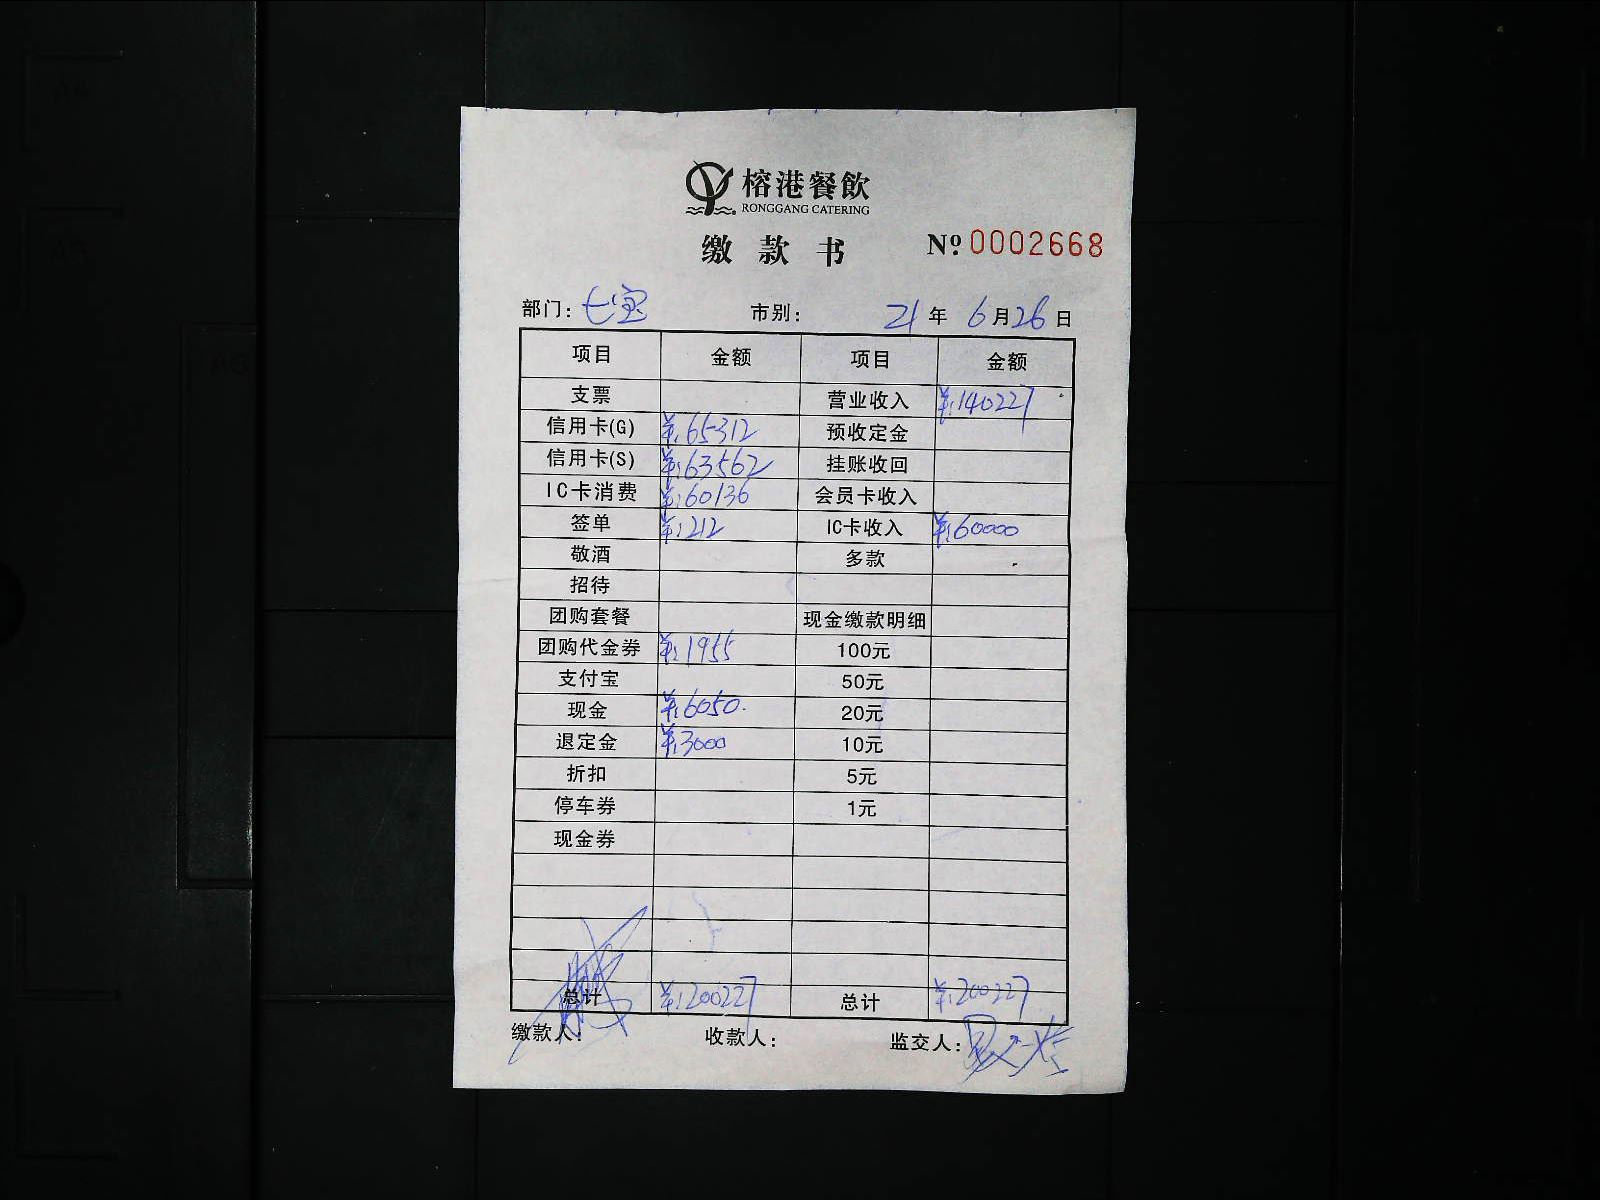 榕港餐飲
RONGGANG CATERING
缴款书 №0002668
部门：七宝 市别： 21年6月26日
项目 金额 项目 金额
支票 营业收入 ¥:140227
信用卡(G) ¥:65312 预收定金
信用卡(S) ¥:63562 挂账收回
IC卡消费 ¥:60136 会员卡收入
签单 ¥:212 IC卡收入 ¥:60000
敬酒 多款
招待
团购套餐 现金缴款明细
团购代金券 ¥:1955 100元
支付宝 50元
现金 ¥:6050. 20元
退定金 ¥:3000 10元
折扣 5元
停车券 1元
现金券
总计 ¥:200227 总计 ¥:200227
缴款人： 收款人： 监交人：